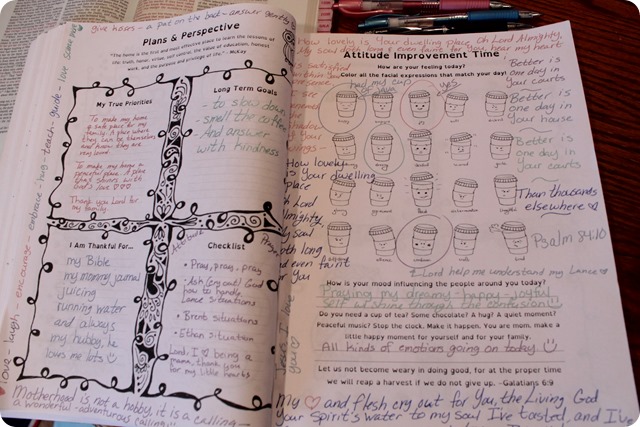 give kisses - a pat on the back - answer gently
Plans & Perspective
"The home is the first and most effective place to learn the lessons of
life: truth, honor, virtue, self control, the value of education, honest
work, and the purpose and privilege of life." - McKay
My True Priorities
To make my home
a safe place for my
family. A place where
they can be themselves
and know they are
very loved.
To make my home a
peaceful place. A place
that shines with
God's love ♡♡♡
Thank you Lord for
my family.
Long Term Goals
- to slow down
- smell the coffee
- And answer
with kindness
I Am Thankful For...
my Bible
my mommy journal
juicing
running water
and always
my hubby, he
loves me lots ☺
Attitude
Checklist
• Pray, pray, pray
• Ask (cry out) God
how to handle
Lance situations
• Brent situations
• Ethan situation
Lord, I ♡ being a
mama, thank you
for my little hearts
love - laugh - encourage - embrace - hug - teach - guide - love some more
Motherhood is not a hobby, it is a calling -
a wonderful - adventurous calling
How lovely is Your dwelling place oh Lord Almighty,
My soul longs & even faints for you, hear my heart
Attitude Improvement Time
How are you feeling today?
Color all the facial expressions that match your day!
Better is
one day in
your courts
Better is
one day in
your house
Better is
one day in
your courts
Than thousands
elsewhere ♡
Psalm 84:10
How lovely
is Your dwelling
place
Lord
Almighty
my soul
both long
and even faint
for You
Jesus I love you
Lord help me understand my Lance ♡
How is your mood influencing the people around you today?
Praying my dreamy - happy - joyful
self is shine through the confusion ☺
Do you need a cup of tea? Some chocolate? A hug? A quiet moment?
Peaceful music? Stop the clock. Make it happen. You are mom, make a
little happy moment for yourself and for your family.
All kinds of emotions going on today ☺
Let us not become weary in doing good, for at the proper time
we will reap a harvest if we do not give up. -Galatians 6:9
My ♡ and flesh cry out for You, the Living God
Your spirit's water to my soul I've tasted, and I've